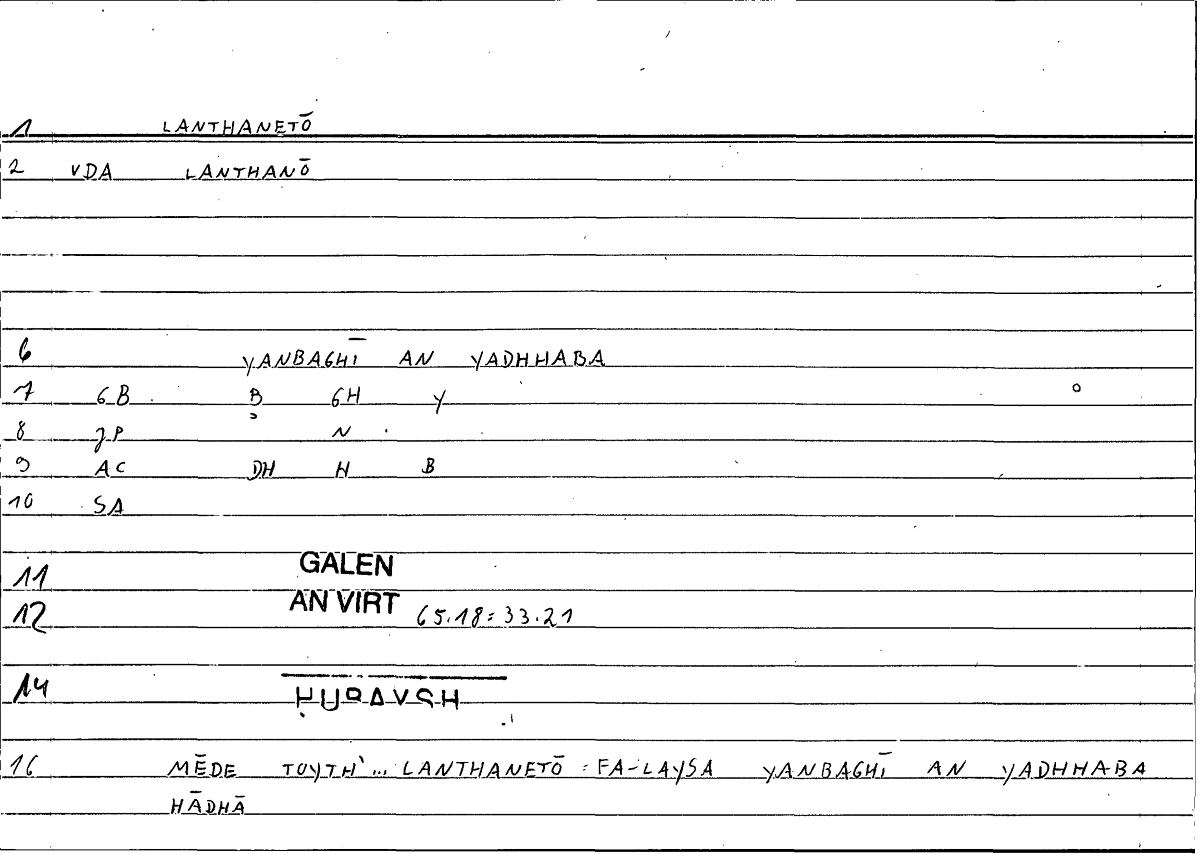 1 LANTHANETŌ
2 VDA LANTHANŌ
6 YANBAGHĪ AN YADHHABA
7 GB Ḅ GH Y
8 JP N
9 AC DH H B
10 SA
11 GALEN
12 AN VIRT 65.18:33.21
14 ḤUBAYSH
16 MĒDE TOYTH' ... LANTHANETŌ : FA-LAYSA YANBAGHĪ AN YADHHABA
HĀDHĀ